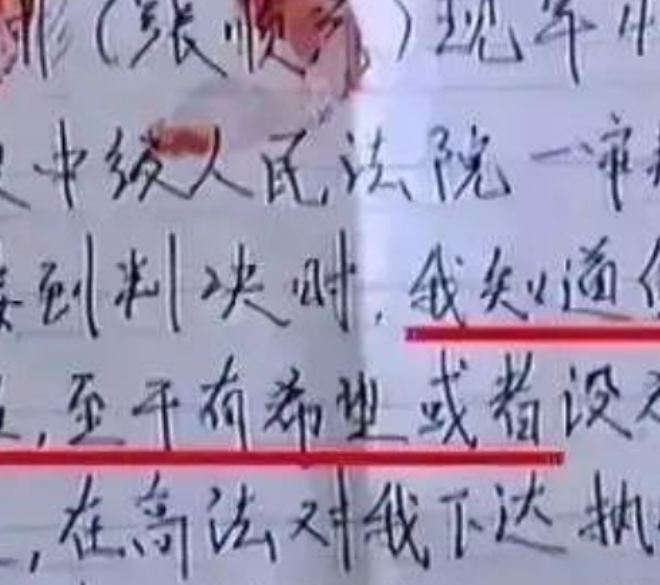 (张顺兴)现年
中级人民法院一审
到判决时,我知道
,至于有希望或者没
,在高法对我下达执